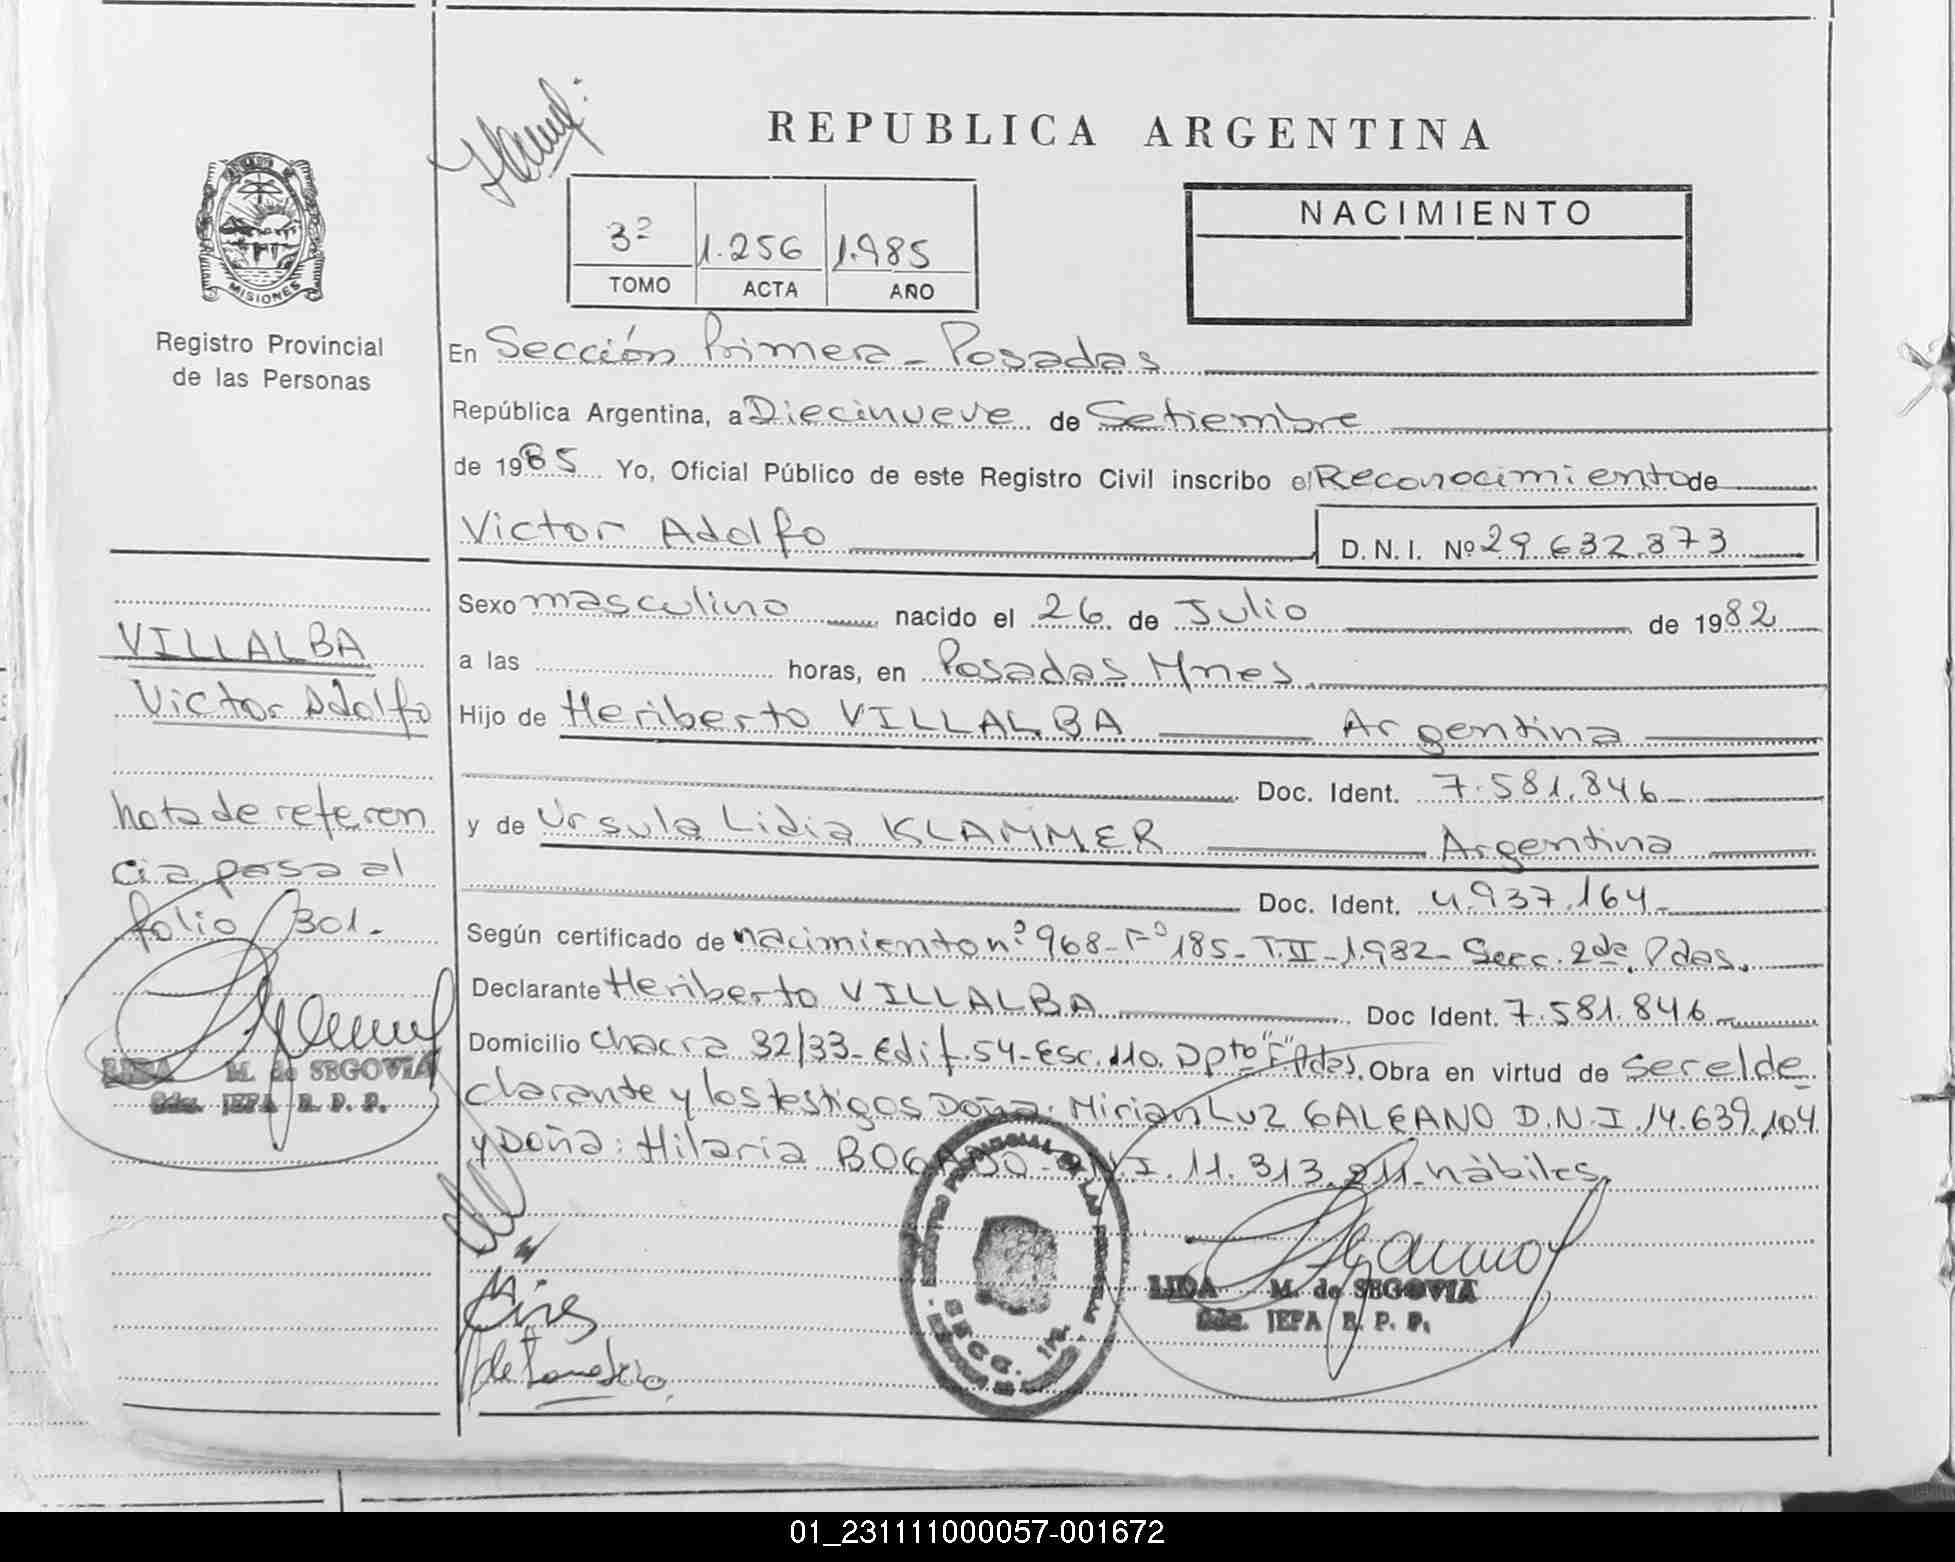 REPUBLICA ARGENTINA
NACIMIENTO
3º 1.256 1.985
TOMO ACTA AÑO
MISIONES
Registro Provincial
de las Personas
En Sección Primera - Posadas
República Argentina, a Diecinueve de Setiembre
de 1985 Yo, Oficial Público de este Registro Civil inscribo el Reconocimiento de
Victor Adolfo D.N.I. Nº 29.632.373
Sexo masculino nacido el 26 de Julio de 1982
a las horas, en Posadas Mnes
Hijo de Heriberto VILLALBA Argentina
Doc. Ident. 7.581.846
y de Ursula Lidia KLAMMER Argentina
Doc. Ident. 4.937.164
Según certificado de nacimiento nº 968 - Fº 185 - T.II - 1.982 - Secc. 2da. Pdas.
Declarante Heriberto VILLALBA Doc Ident. 7.581.846
Domicilio Chacra 32/33 - Edif. 54 - Esc. 110. Dpto "F" Pdas. Obra en virtud de ser el de
clarante y los testigos Doña: Mirian Luz GALEANO D.N.I. 14.639.104
y Doña: Hilaria BOGADO - D.N.I. 11.313.211 - hábiles.
VILLALBA
Victor Adolfo
nota de referen
cia pasa al
folio 301.-
LIDA M. de SEGOVIA
Gdec. JEFA R. P. P.
REGISTRO PROVINCIAL DE LAS PERSONAS
SECC. 1ra.
LIDA M. de SEGOVIA
Gdec. JEFA R. P. P.
01_231111000057-001672